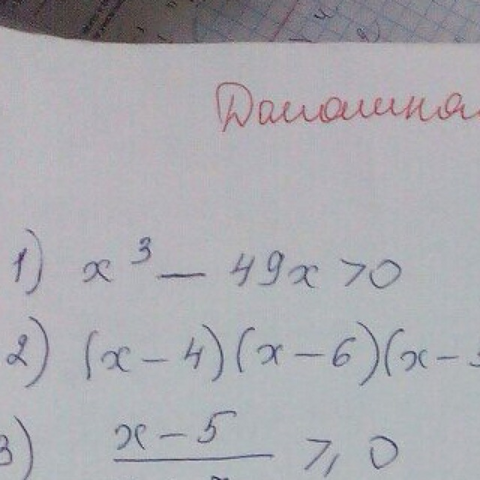 Домашная
1) x³ — 49x > 0
2) (x – 4)(x – 6)(x –
3) x – 5 ⩾ 0